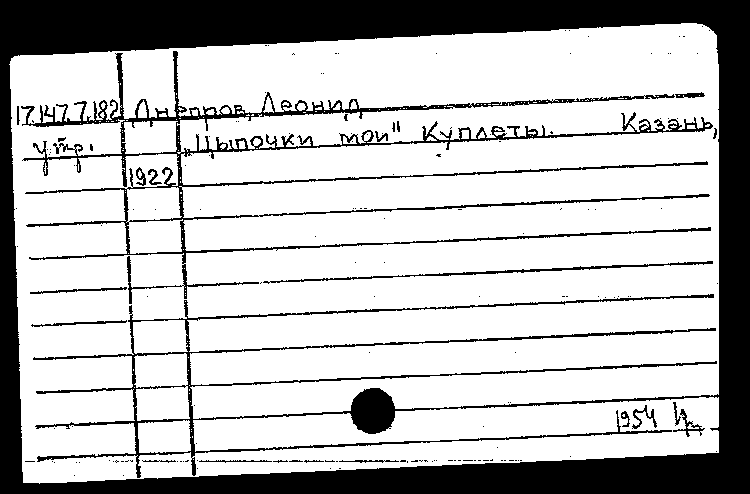 17.147.7.182 Днепров, Леонид
утр. „Цыпочки мои" Куплеты. Казань,
1922
1954